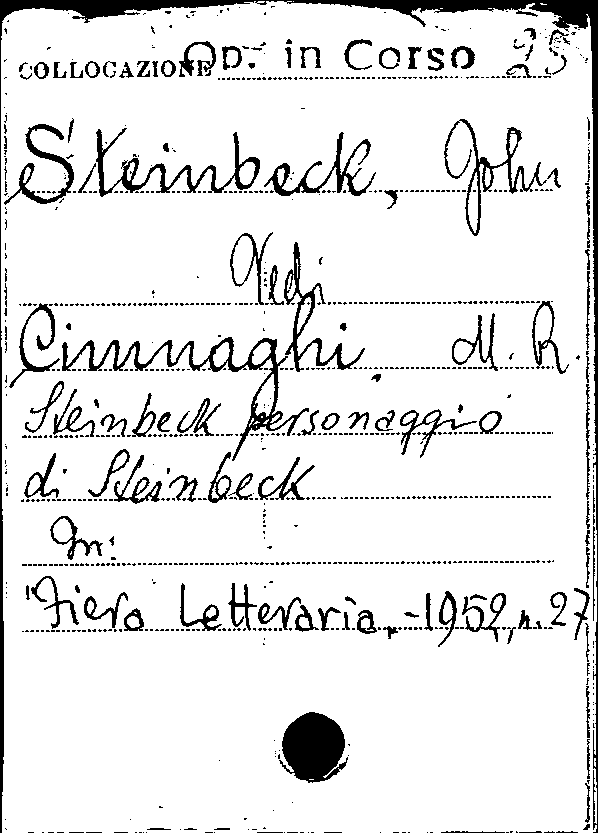 COLLOCAZIONE Op. in Corso 25
Steinbeck, John
Vedi
Cimnaghi. M. R.
Steinbeck personaggio
di Steinbeck
In:
"Fiera Letteraria" - 1952, n. 27